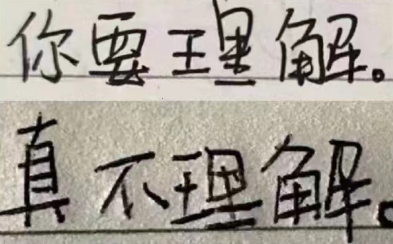 你要理解。
真不理解。